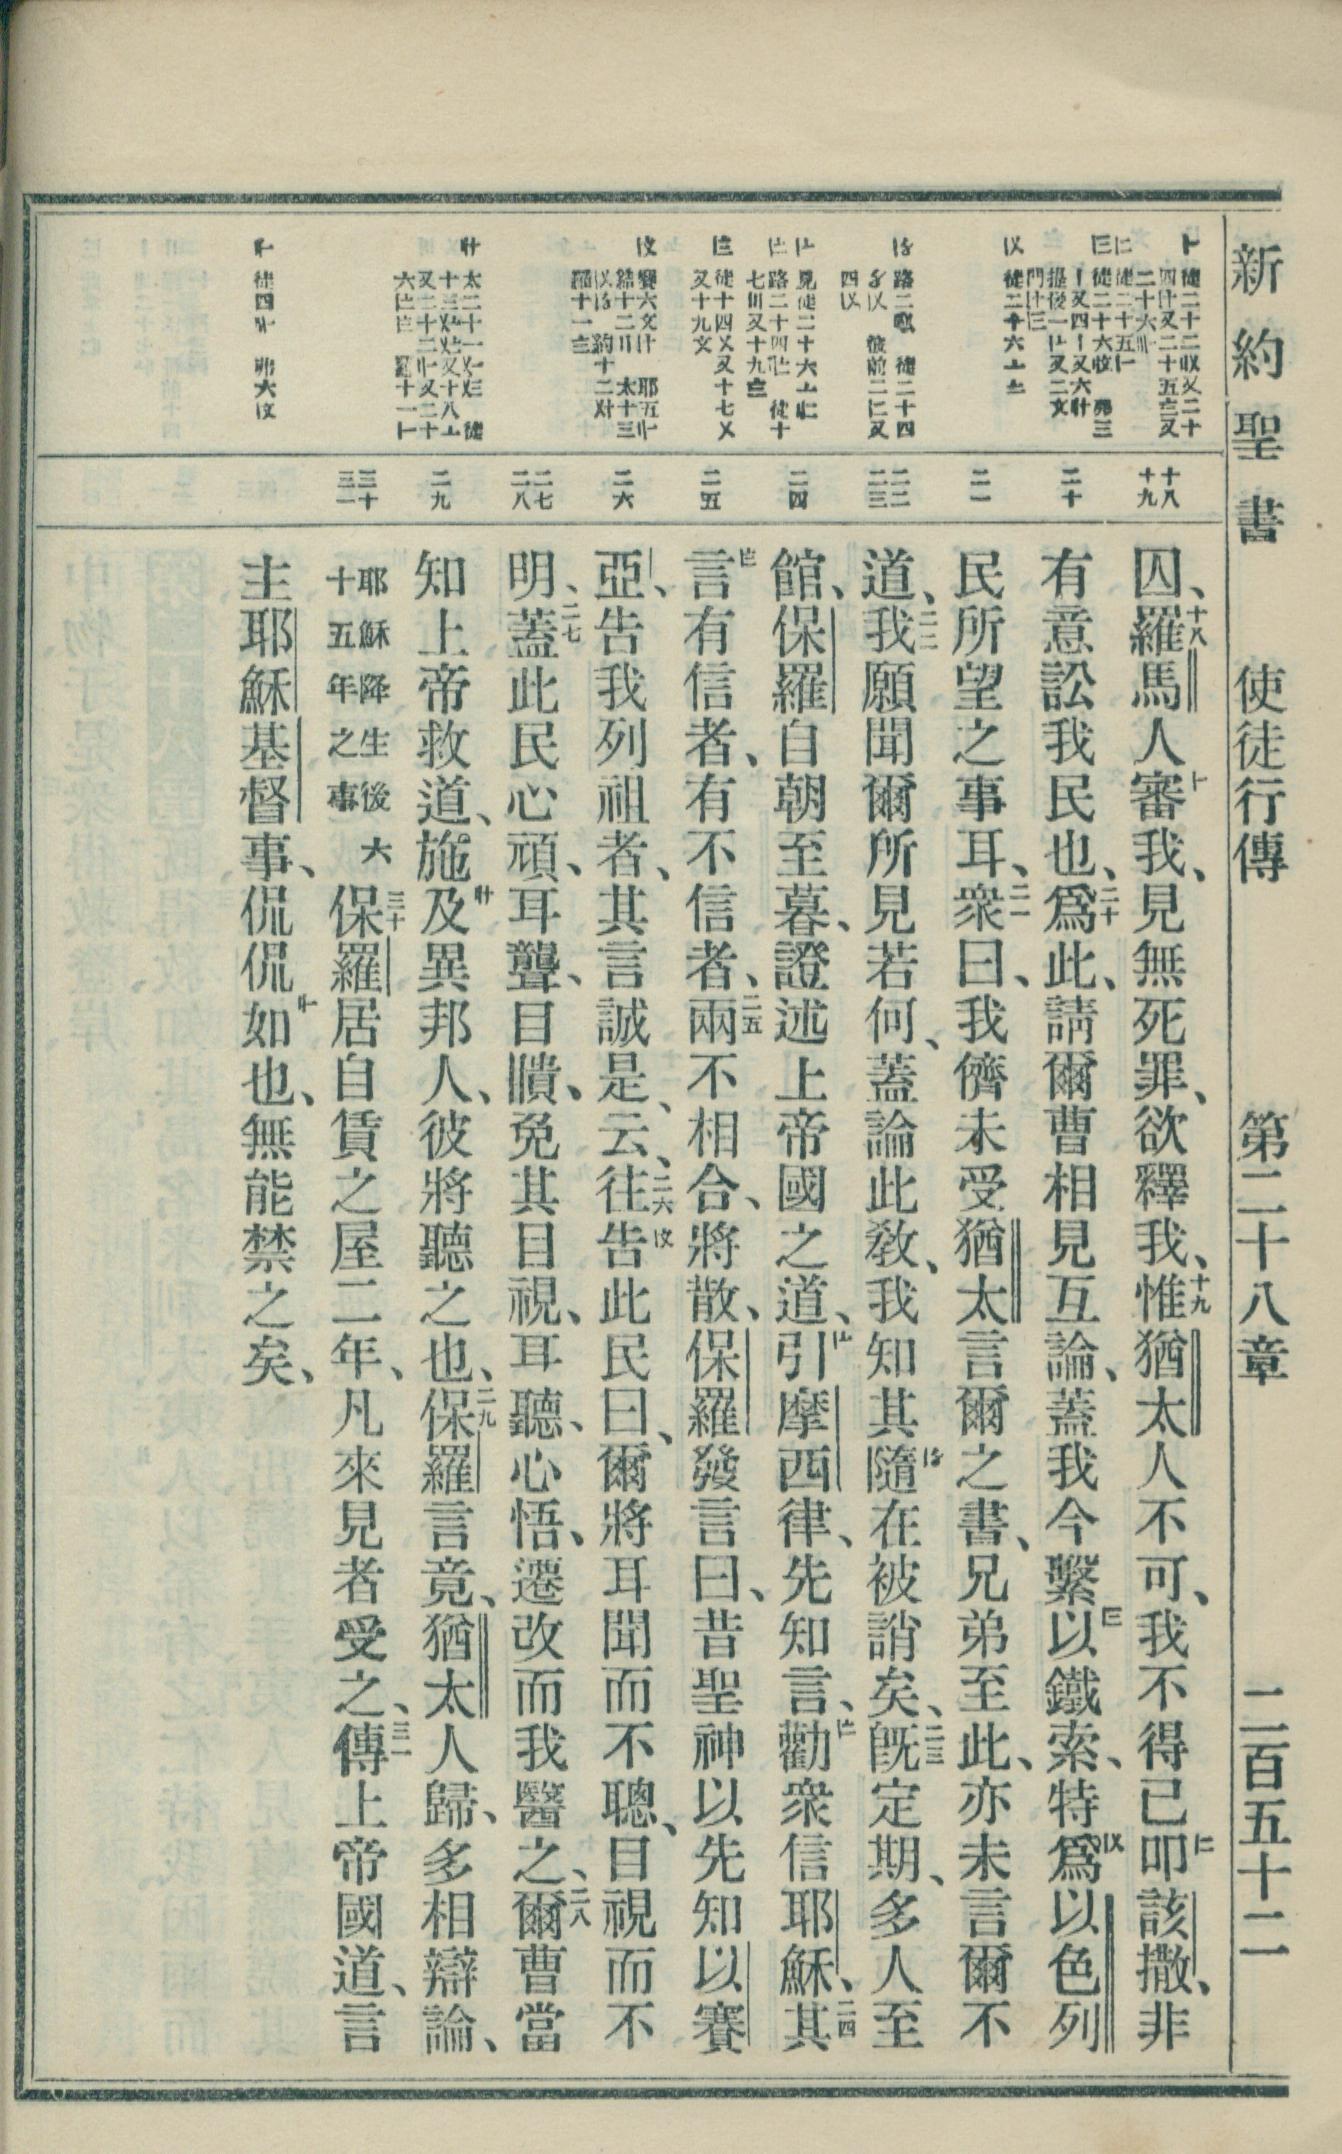 新約聖書 使徒行傳 第二十八章 二百五十二
十八
十九
二十
二一
二二
二三
二四
二五
二六
二七
二八
二九
三十
三一
囚、十八羅馬人審我、見無死罪、欲釋我、十九惟猶太人不可、我不得已叩該撒、非
有意訟我民也、二十爲此、請爾曹相見互論、蓋我今繫以鐵索、特爲以色列
民所望之事耳、二一衆曰、我儕未受猶太言爾之書、兄弟至此、亦未言爾不
道、二二我願聞爾所見若何、蓋論此敎、我知其隨在被誚矣、二三旣定期、多人至
館、保羅自朝至暮、證述上帝國之道、引摩西律、先知言、勸衆信耶穌、二四其
言有信者、有不信者、二五兩不相合、將散、保羅發言曰、昔聖神以先知以賽
亞、告我列祖者、其言誠是、云、二六往告此民曰、爾將耳聞而不聰、目視而不
明、二七蓋此民心頑、耳聾、目瞶、免其目視、耳聽、心悟、遷改而我醫之、二八爾曹當
知上帝救道、施及異邦人、彼將聽之也、二九保羅言竟、猶太人歸、多相辯論、
耶穌降生後六
十五年之事
三十保羅居自賃之屋二年、凡來見者受之、三一傳上帝國道、言
主耶穌基督事、侃侃如也、無能禁之矣、